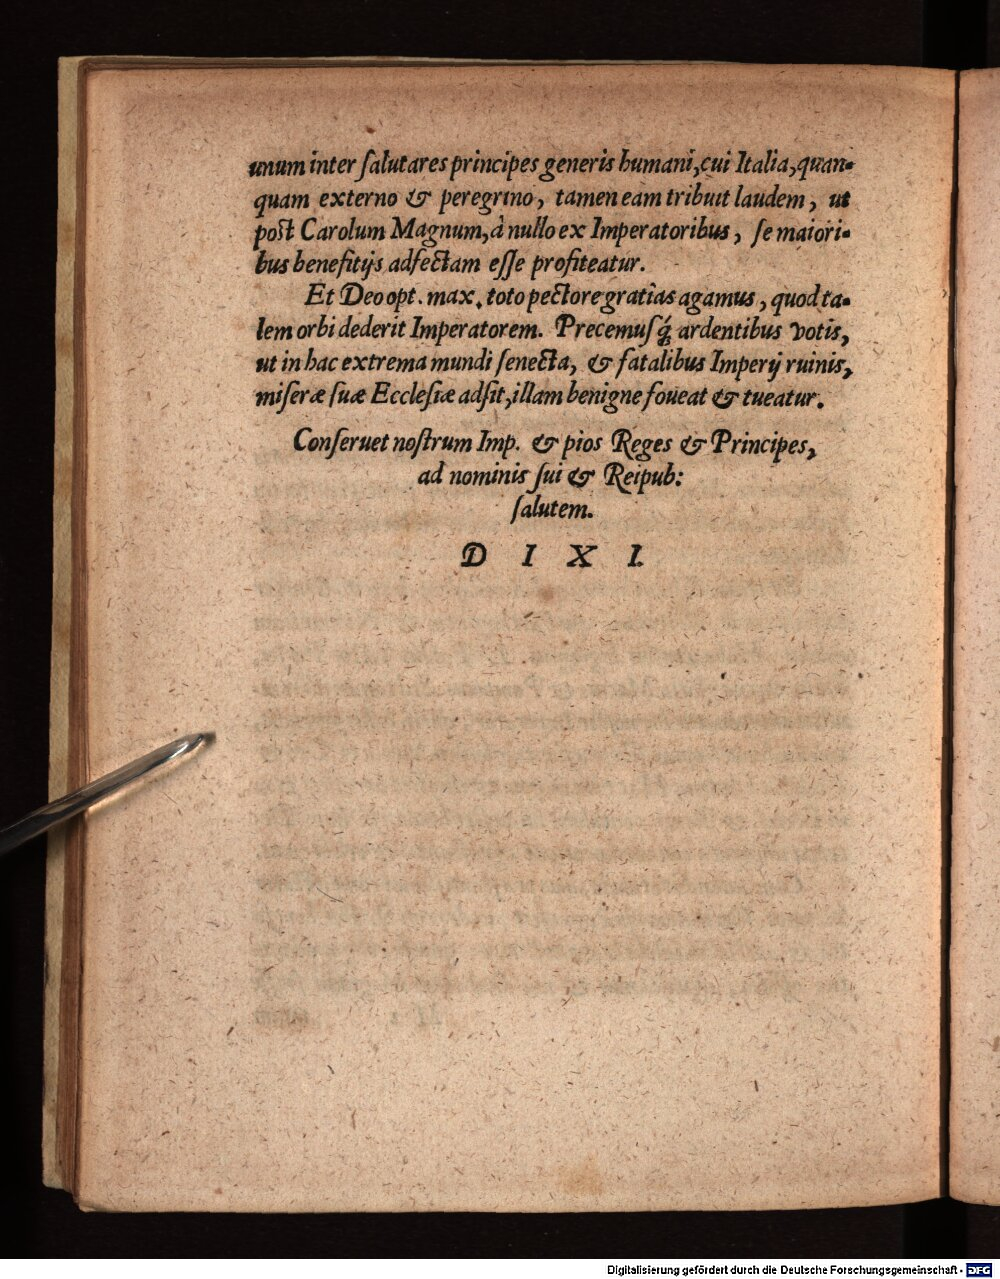 unum inter ſalutares principes generis humani, cui Italia, quan-
quam externo & peregrino, tamen eam tribuit laudem, ut
poſt Carolum Magnum, à nullo ex Imperatoribus, ſe maiori-
bus benefitijs adfectam eſſe profiteatur.
Et Deo opt. max. toto pectore gratias agamus, quod ta-
lem orbi dederit Imperatorem. Precemuſq́; ardentibus votis,
ut in hac extrema mundi ſenecta, & fatalibus Imperij ruinis,
miſeræ ſuæ Eccleſiæ adſit, illam benigne foueat & tueatur.
Conſeruet noſtrum Imp. & pios Reges & Principes,
ad nominis ſui & Reipub:
ſalutem.
D I X I.
Digitalisierung gefördert durch die Deutsche Forschungsgemeinschaft - DFG